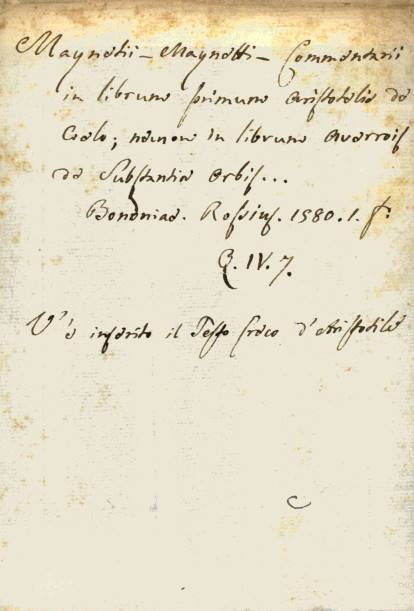 Maynetii - Maynetti - Commentarii
in librum primum Aristotelis de
Coelo; necnon in librum Averrois
de Substantia orbis...
Bononiae. Rossius. 1580. 1. f.
Q. IV. 7.
V'è inserito il Testo Greco d'Aristotile